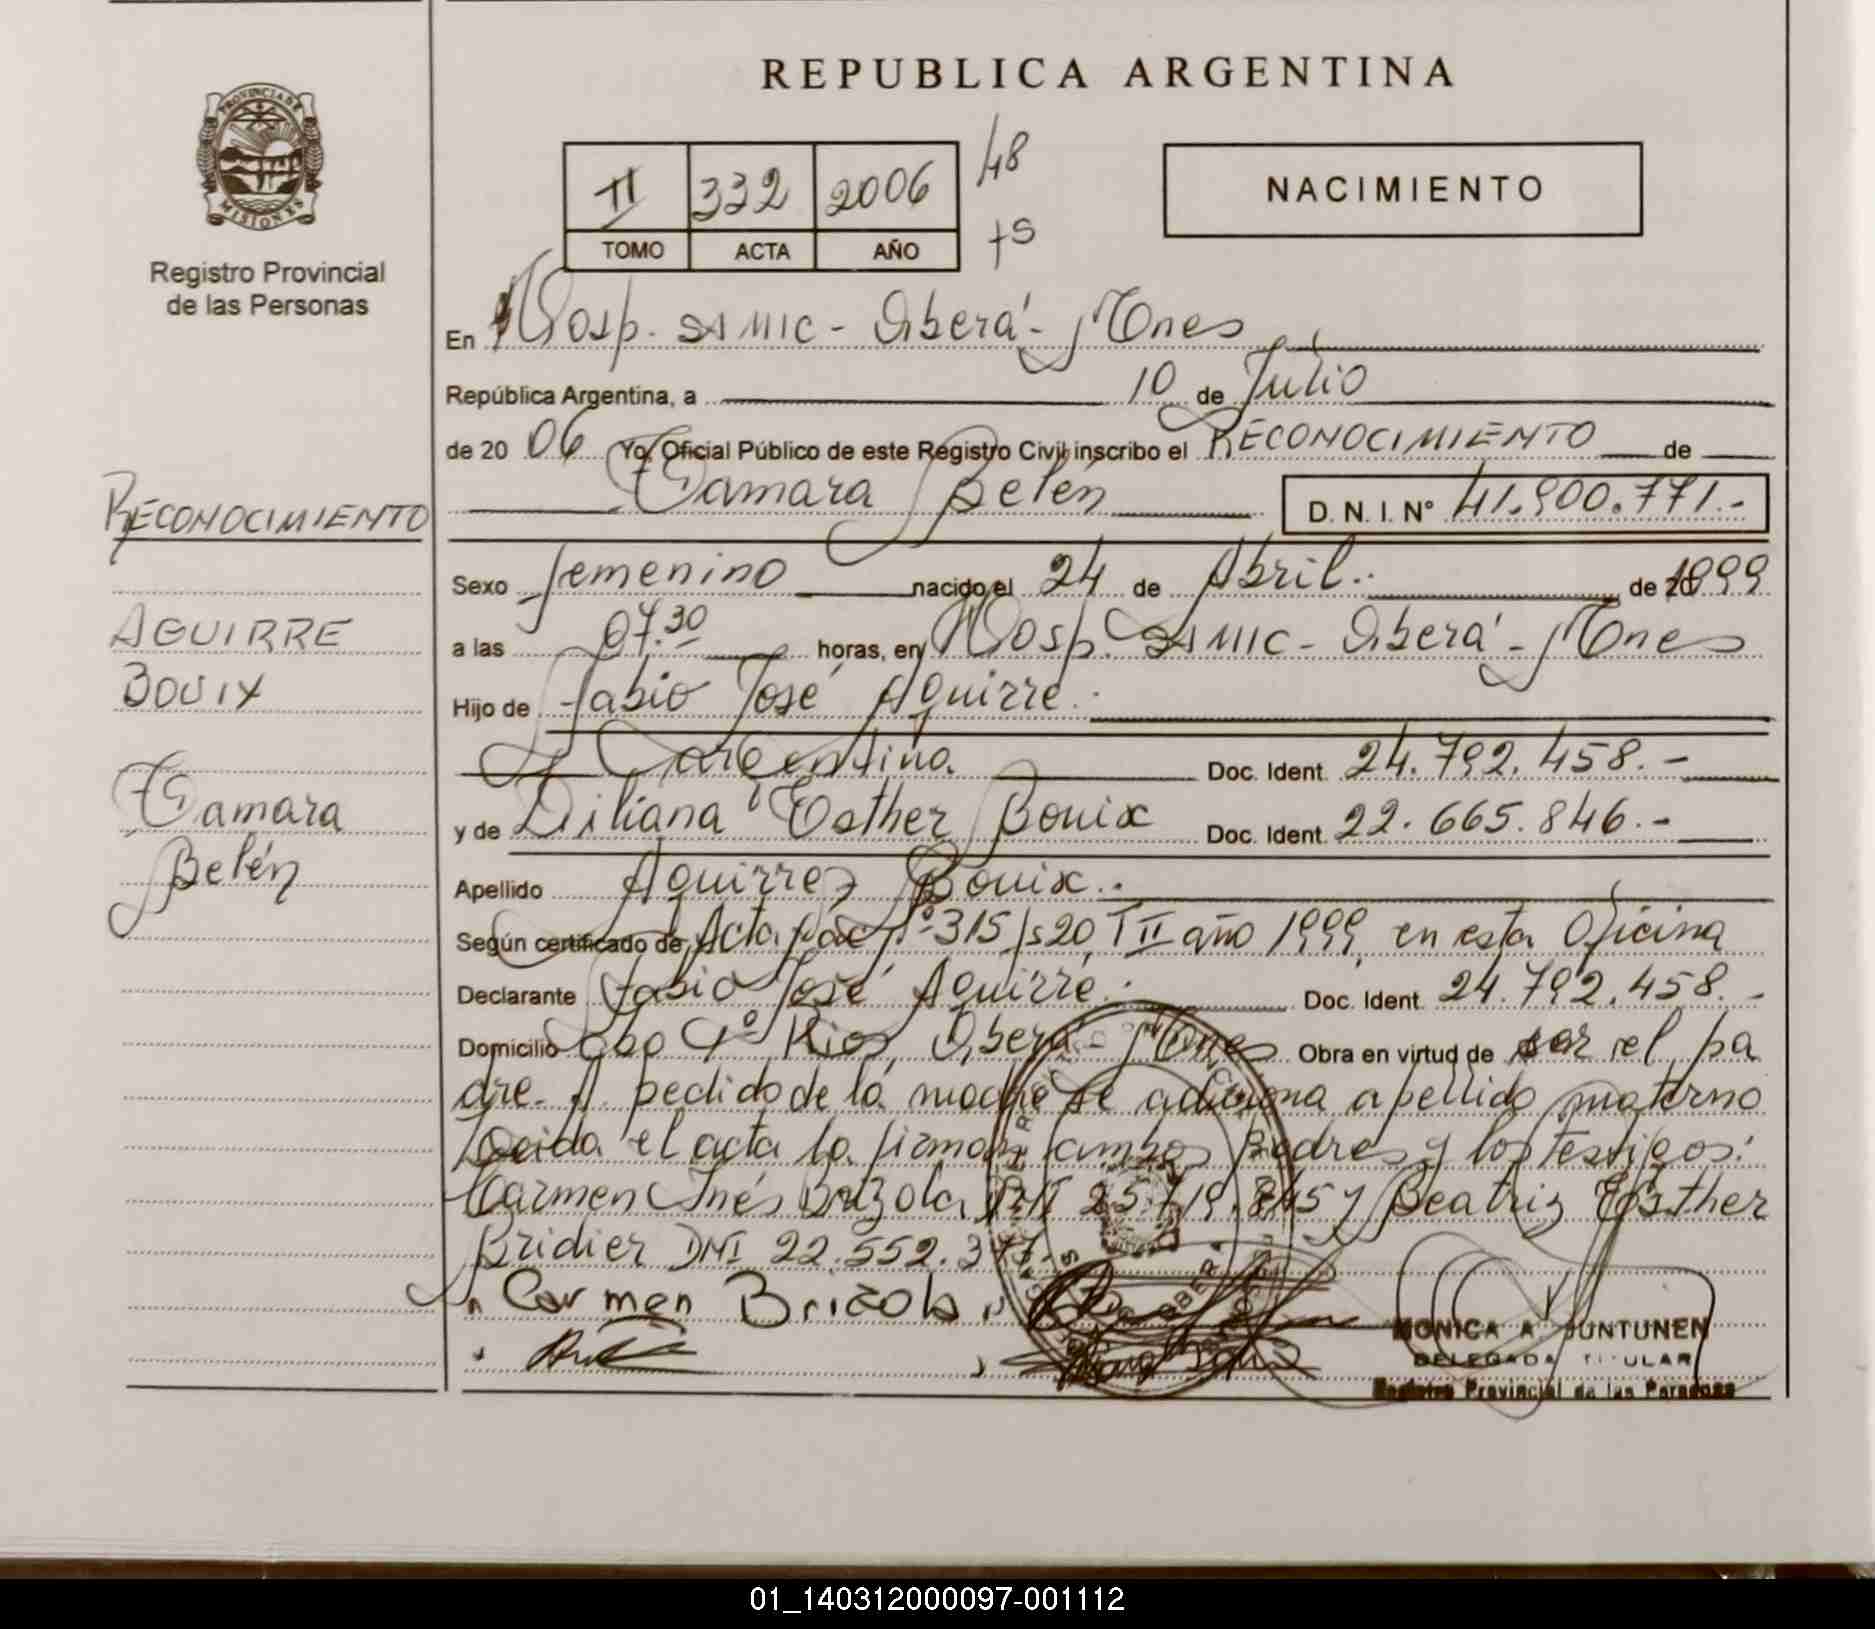 PROVINCIA DE
MISIONES
Registro Provincial
de las Personas
REPUBLICA ARGENTINA
II 332 2006
TOMO ACTA AÑO
/48
ts
NACIMIENTO
En Hosp. SAMIC - Oberá - Mnes
República Argentina, a 10 de Julio
de 20 06 Yo, Oficial Público de este Registro Civil inscribo el RECONOCIMIENTO de
Tamara Belén D. N. I. N° 41.900.771.-
RECONOCIMIENTO
AGUIRRE
BOUIX
Tamara
Belén
Sexo femenino nacido el 24 de Abril.. de 20 1999
a las 07.30 horas, en Hosp. SAMIC - Oberá - Mnes
Hijo de Fabio José Aguirre.
Argentina Doc. Ident. 24.792.458.-
y de Liliana Esther Bouix Doc. Ident. 22.665.846.-
Apellido Aguirre Bouix..
Según certificado de Acta Nac N° 315/s20, T II año 1999, en esta Oficina
Declarante Fabio José Aguirre. Doc. Ident. 24.792.458.-
Domicilio Ríos, Oberá - Mnes Obra en virtud de ser el pa
dre. A pedido de la madre se adiciona apellido materno
Leida el acta la firman ambos padres y los testigos:
Carmen Inés Brizola DNI 25.719.845 y Beatriz Esther
Bridier DNI 22.552.377
Carmen Brizola
MONICA A JUNTUNEN
DELEGADA TITULAR
Registro Provincial de las Personas
01_140312000097-001112